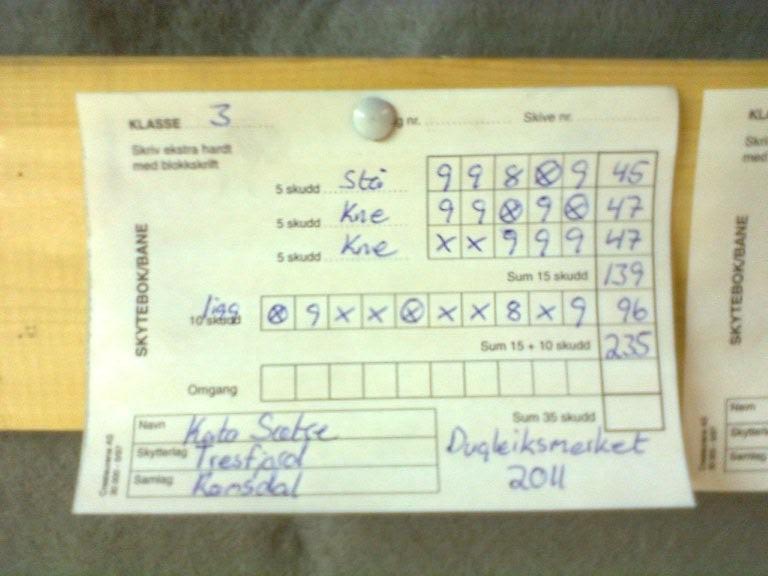 KLASSE 3 g nr. Skive nr.
Skriv ekstra hardt
med blokkskrift
5 skudd Stå 9 9 8 ⊗ 9 45
5 skudd Kne 9 9 ⊗ 9 ⊗ 47
5 skudd Kne x x 9 9 9 47
Sum 15 skudd 139
10 skudd ligg ⊗ 9 x x ⊗ x x 8 x 9 96
Sum 15 + 10 skudd 235
Omgang
Sum 35 skudd
SKYTEBOK/BANE
Navn Kato Sætre
Skytterlag Tresfjord
Samlag Romsdal
Dugleiksmerket
2011
KL
Skriv
med
SKYTEBOK/BANE
Navn
Skytterla
Samlag